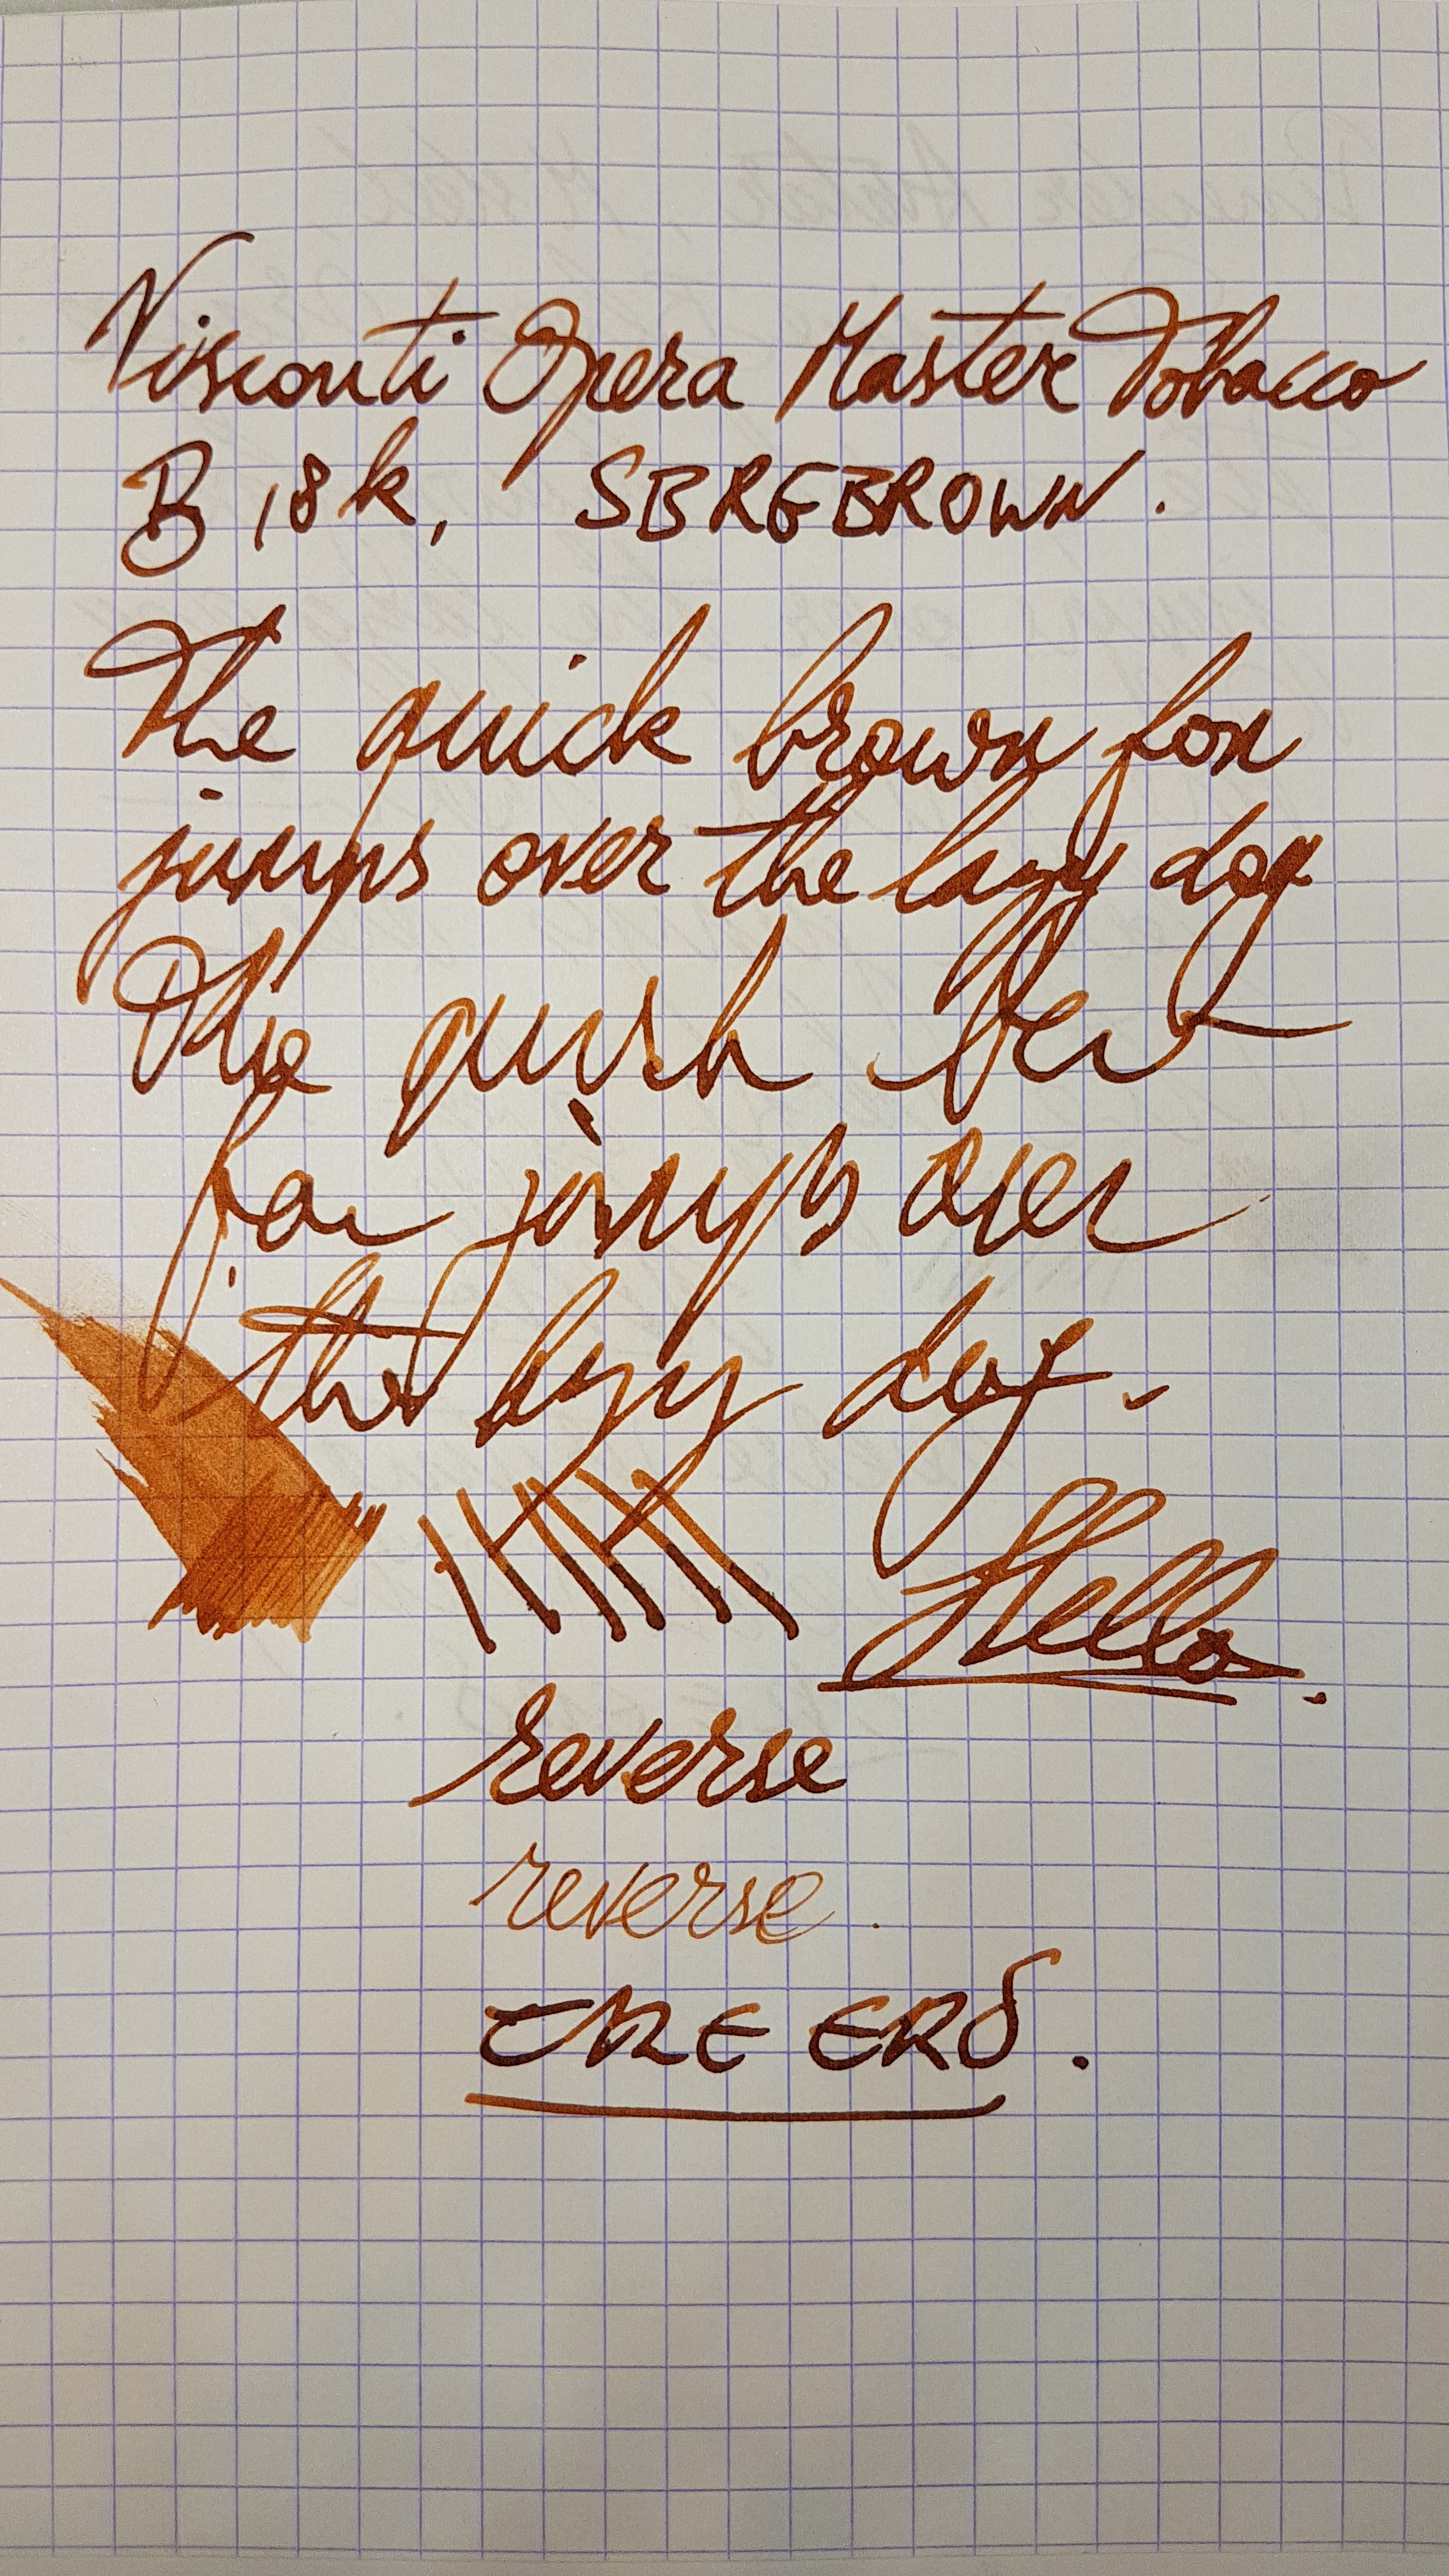 Visconti Opera Master Tobacco
B 18k, SBREBROWN.
The quick brown fox
jumps over the lazy dog
The quish
jumps over
the lazy dog.
Hello.
reverse
reverse.